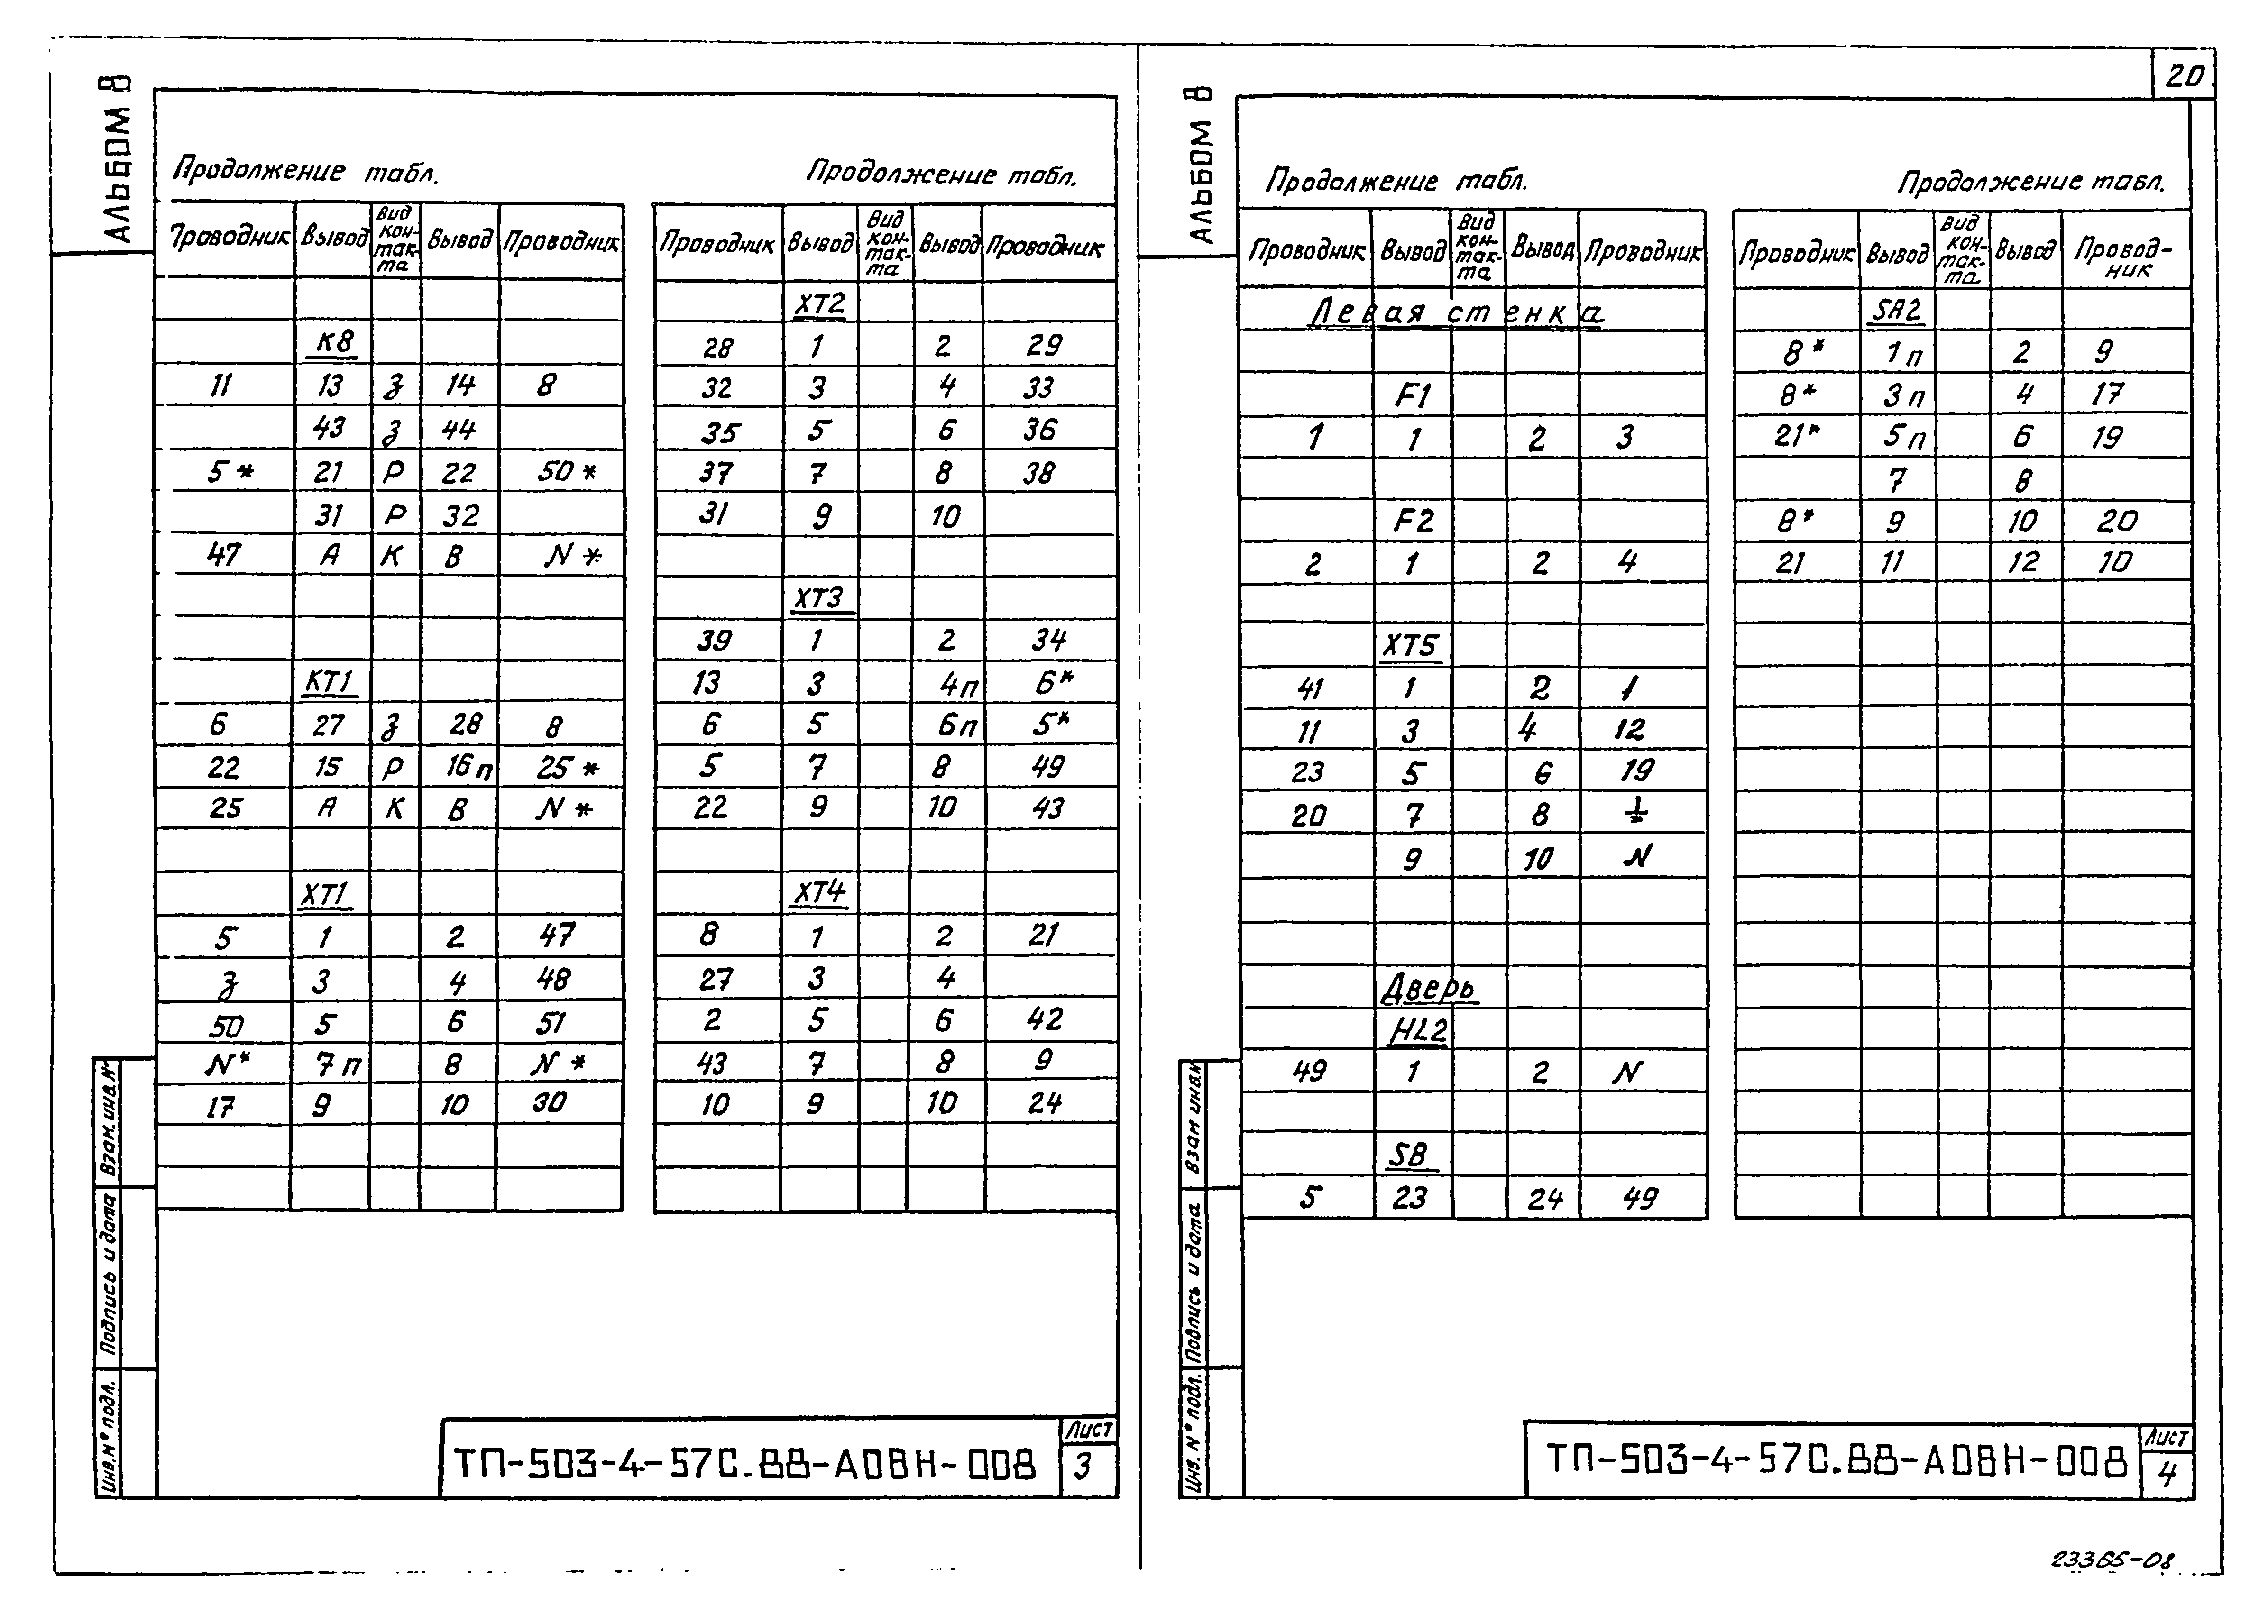 20
АЛЬБОМ 8
Продолжение табл.
Проводник Вывод Вид кон-так-та Вывод Проводник
К8
11 13 З 14 8
43 З 44
5* 21 Р 22 50*
31 Р 32
47 А К В N*
КТ1
6 27 З 28 8
22 15 Р 16п 25*
25 А К В N*
ХТ1
5 1 2 47
З 3 4 48
50 5 6 51
N* 7п 8 N*
17 9 10 30
Продолжение табл.
Проводник Вывод Вид кон-так-та Вывод Проводник
ХТ2
28 1 2 29
32 3 4 33
35 5 6 36
37 7 8 38
31 9 10
ХТ3
39 1 2 34
13 3 4п 6*
6 5 6п 5*
5 7 8 49
22 9 10 43
ХТ4
8 1 2 21
27 3 4
2 5 6 42
43 7 8 9
10 9 10 24
Взам.инв.№
Подпись и дата
Инв.№ подл.
ТП-503-4-57С.88-АОВН-008
Лист
3
АЛЬБОМ 8
Продолжение табл.
Проводник Вывод Вид кон-так-та Вывод Проводник
Левая стенка
F1
1 1 2 3
F2
2 1 2 4
ХТ5
41 1 2 1
11 3 4 12
23 5 6 19
20 7 8 ⏚
9 10 N
Дверь
HL2
49 1 2 N
SB
5 23 24 49
Продолжение табл.
Проводник Вывод Вид кон-так-та Вывод Провод-ник
SA2
8* 1п 2 9
8* 3п 4 17
21* 5п 6 19
7 8
8* 9 10 20
21 11 12 10
Взам инв.№
Подпись и дата
Инв.№ подл.
ТП-503-4-57С.88-АОВН-008
Лист
4
23365-08